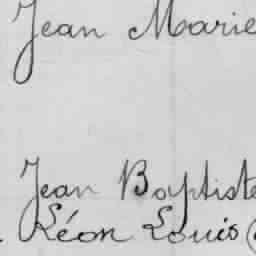 Jean Marie
Jean Baptiste
Léon Louis (